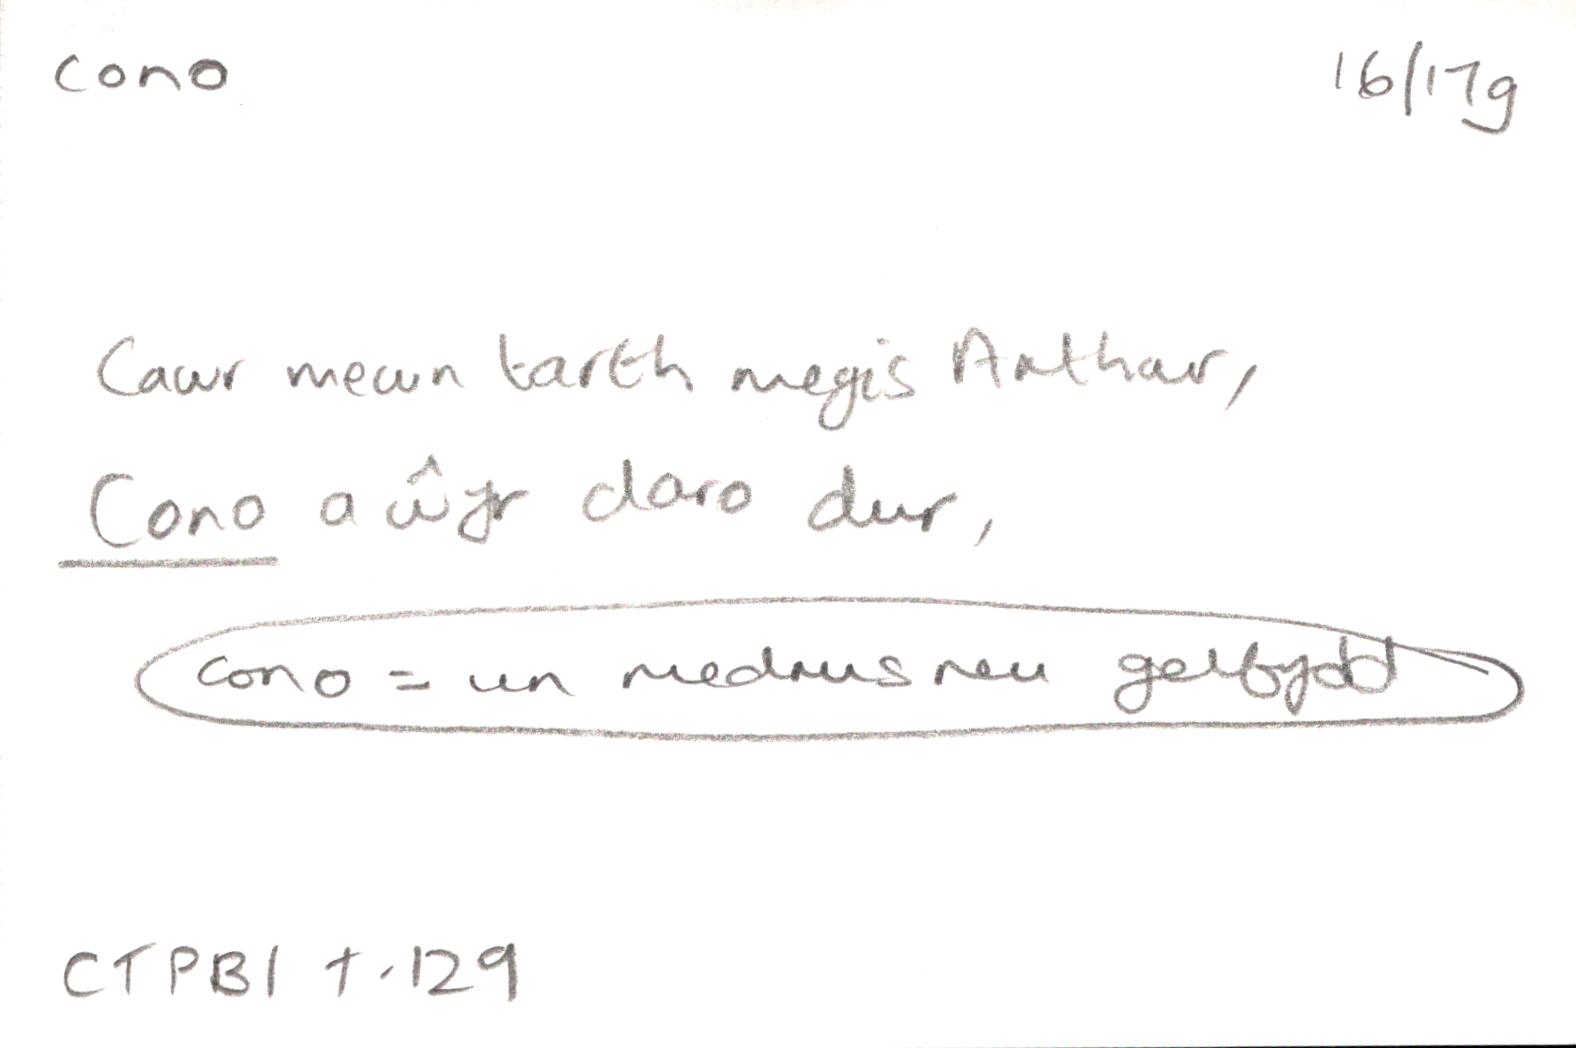 cono 16/17g
Cawr mewn tarth megis Arthur,
Cono a ŵyr daro dur,
cono = un medrus neu gelfydd
CTPB1 t. 129